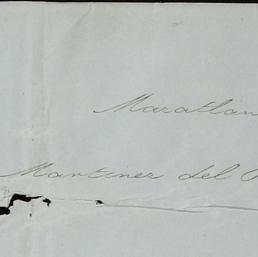 Mazatlan
Martinez del